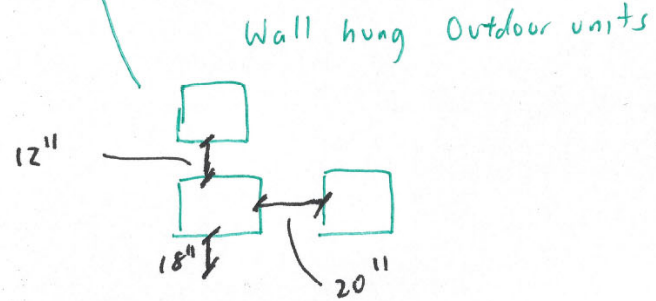 Wall hung Outdoor units
12"
18"
20"